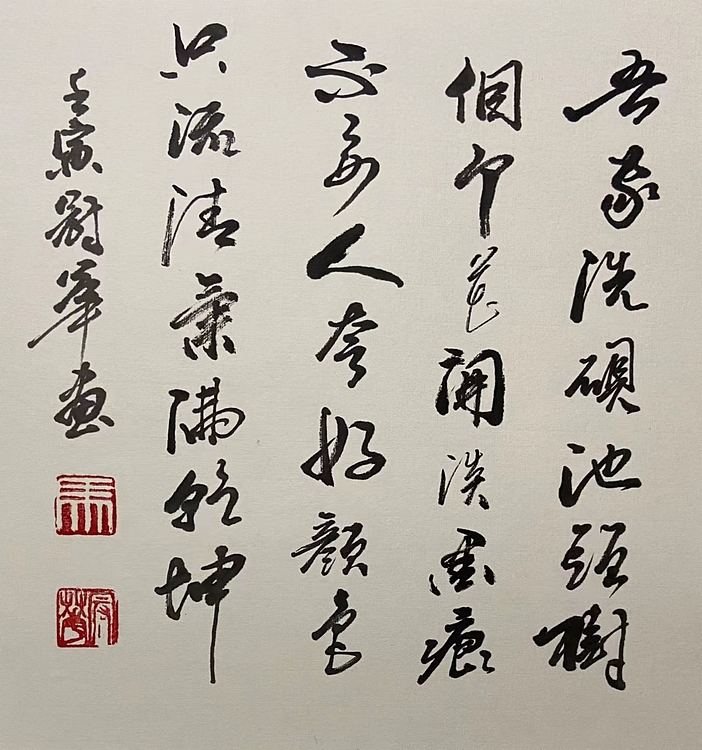 吾家洗硯池頭樹
個个花開淡墨痕
不要人夸好顏色
只流清氣滿乾坤
壬寅尉華畫